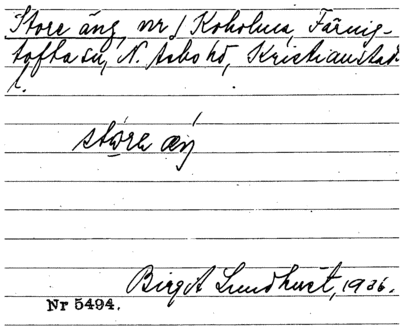 Store äng, vr / Koholma, Färing-
tofta sn, N. Åsbo hd, Kristianstads
l.
stóra æŋ
Birgit Lundkvist, 1936.
Nr 5494.